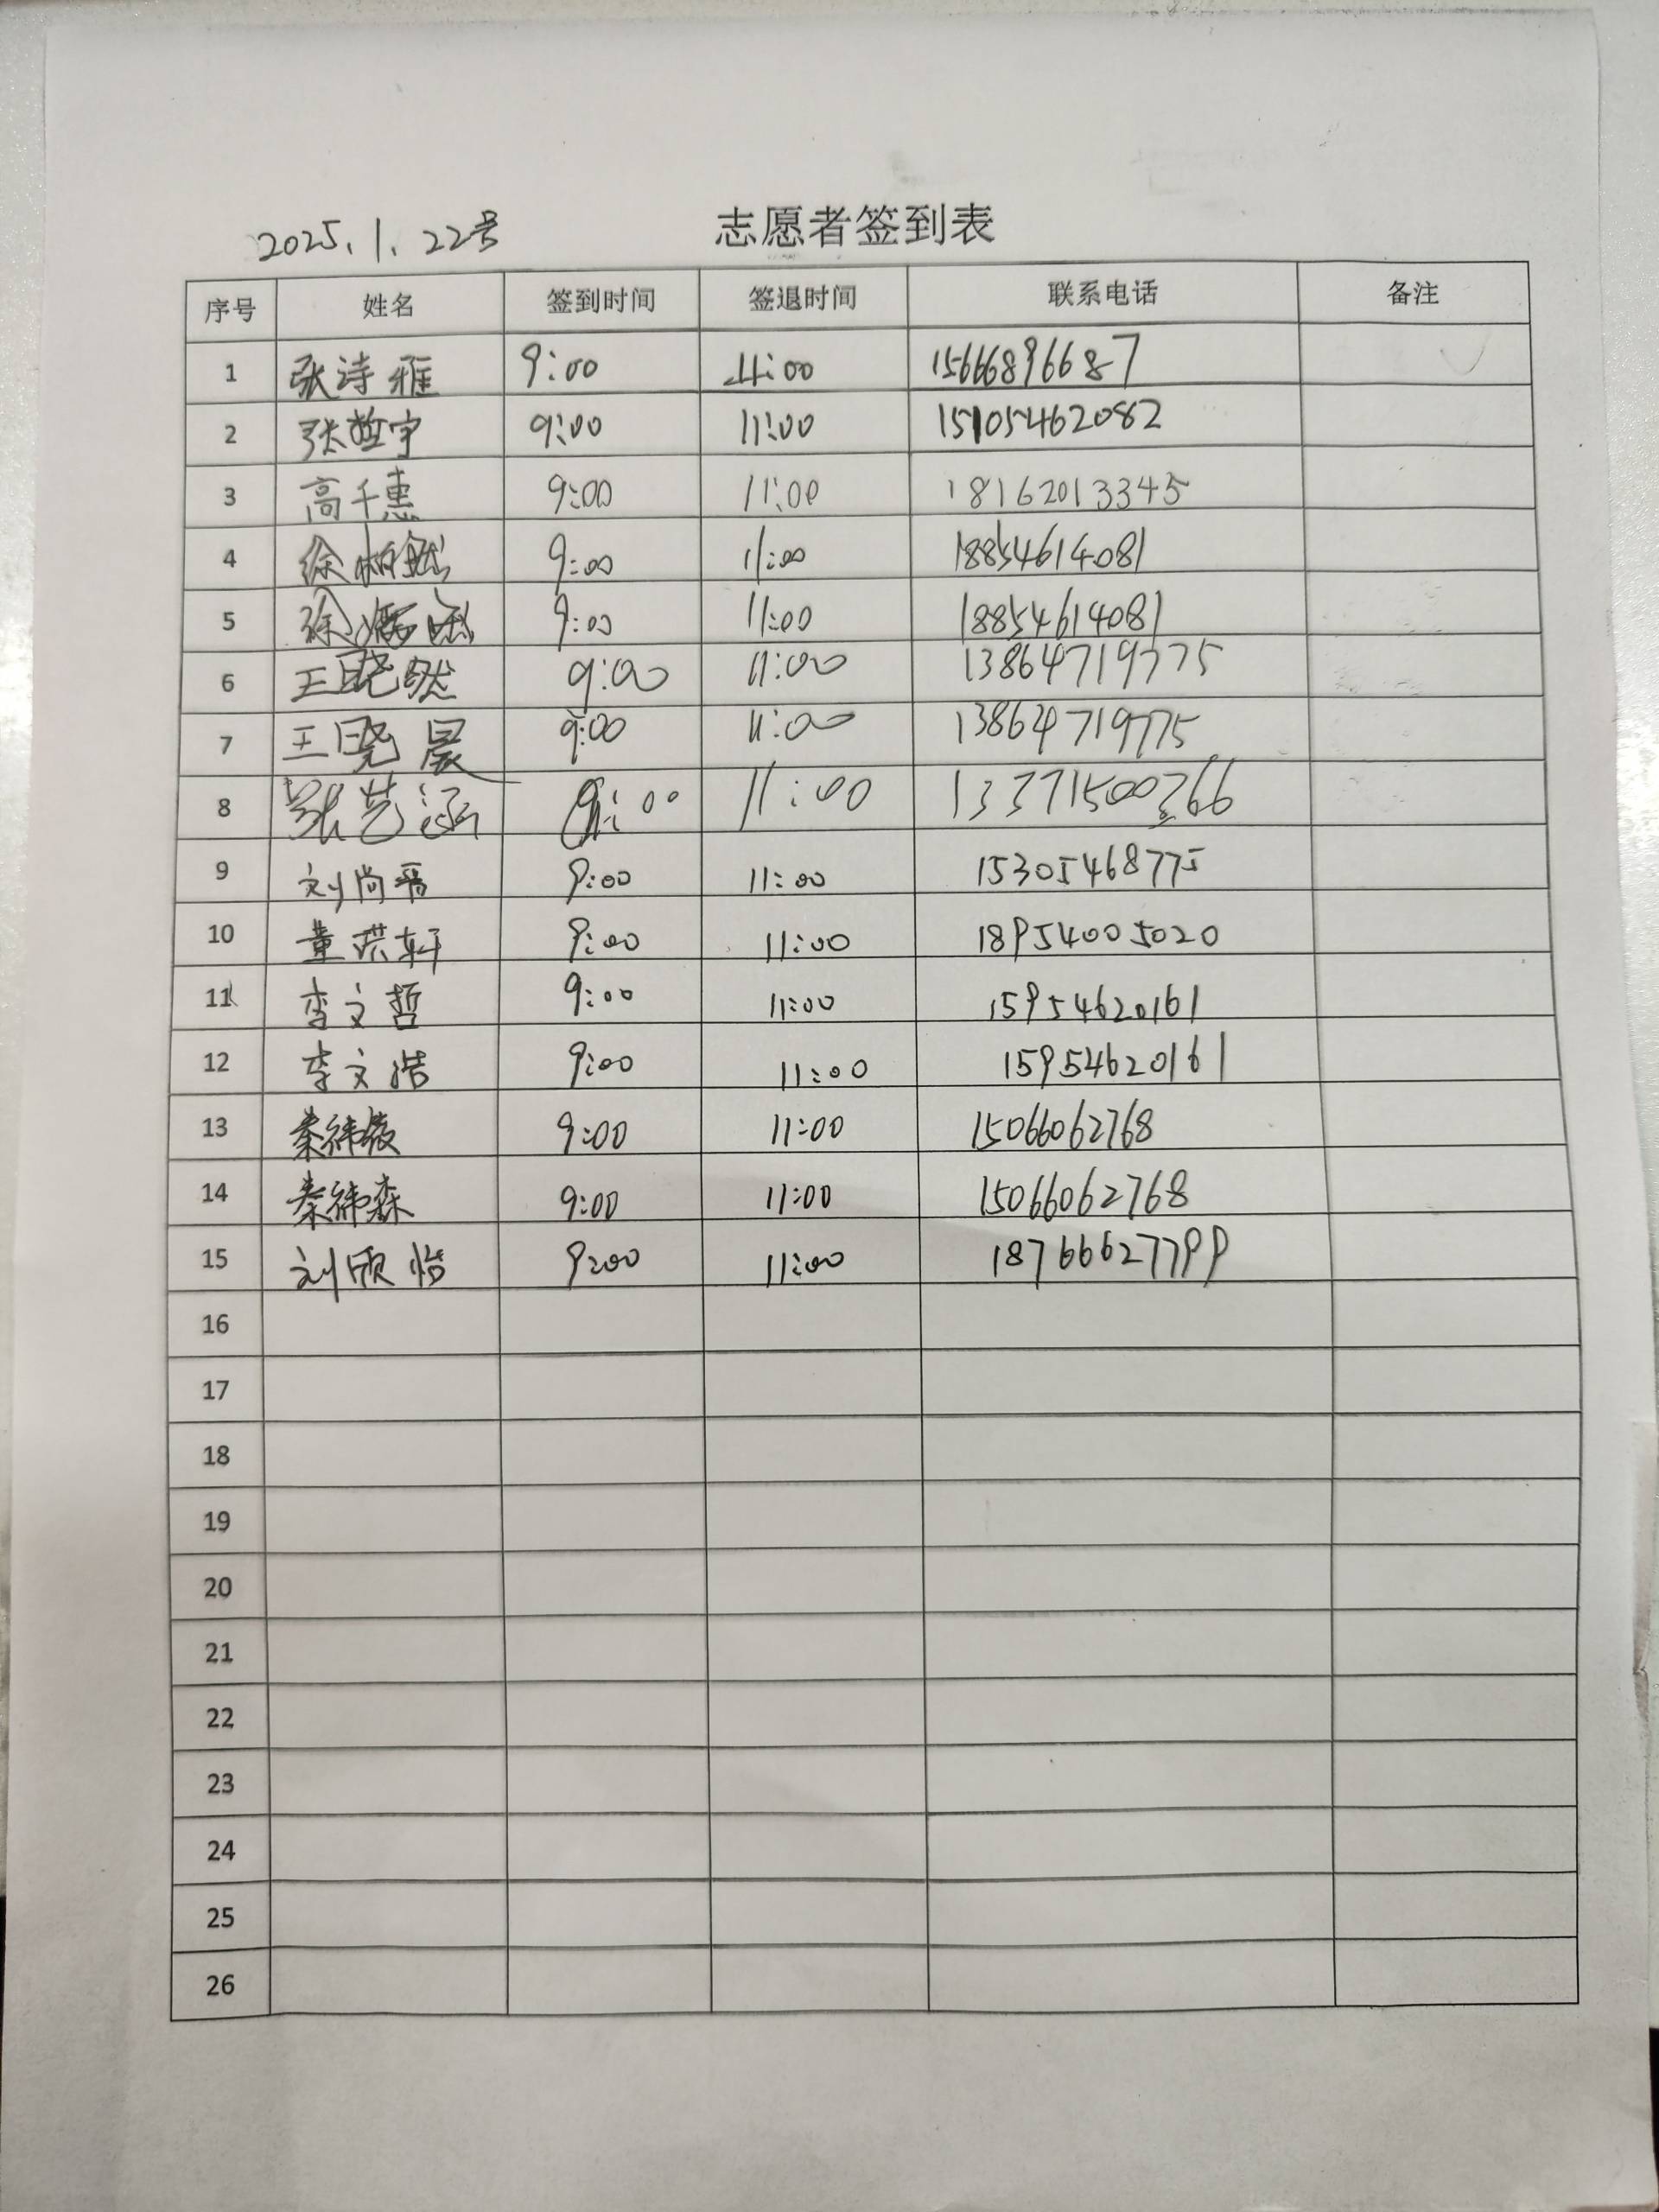 2025.1.22号 志愿者签到表
序号 姓名 签到时间 签退时间 联系电话 备注
1 张诗雅 9:00 11:00 15666896687
2 张哲宇 9:00 11:00 15105462082
3 高千惠 9:00 11:00 18162013345
4 徐 9:00 11:00 18854614081
5 徐 9:00 11:00 18854614081
6 王晓然 9:00 11:00 13864719775
7 王晓晨 9:00 11:00 13864719775
8 张艺涵 9:00 11:00 13371500366
9 刘尚晋 9:00 11:00 15305468775
10 董淇轩 9:00 11:00 18954005020
11 李文哲 9:00 11:00 15954620161
12 李文浩 9:00 11:00 15954620161
13 秦纬薇 9:00 11:00 15066062768
14 秦纬森 9:00 11:00 15066062768
15 刘欣怡 9:00 11:00 18766627799
16
17
18
19
20
21
22
23
24
25
26